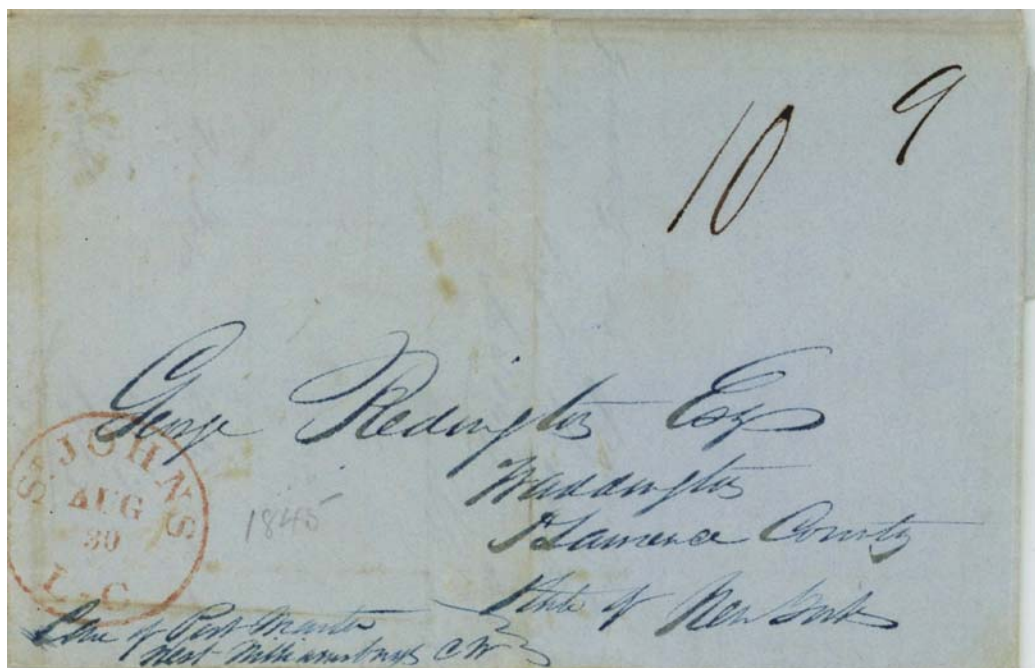 10 9
George Redington Esq
Waddington
St Lawrence County
State of New York
St JOHNS
AUG
30
L.C
1845
Care of Post Master
West Williamsburgh C W